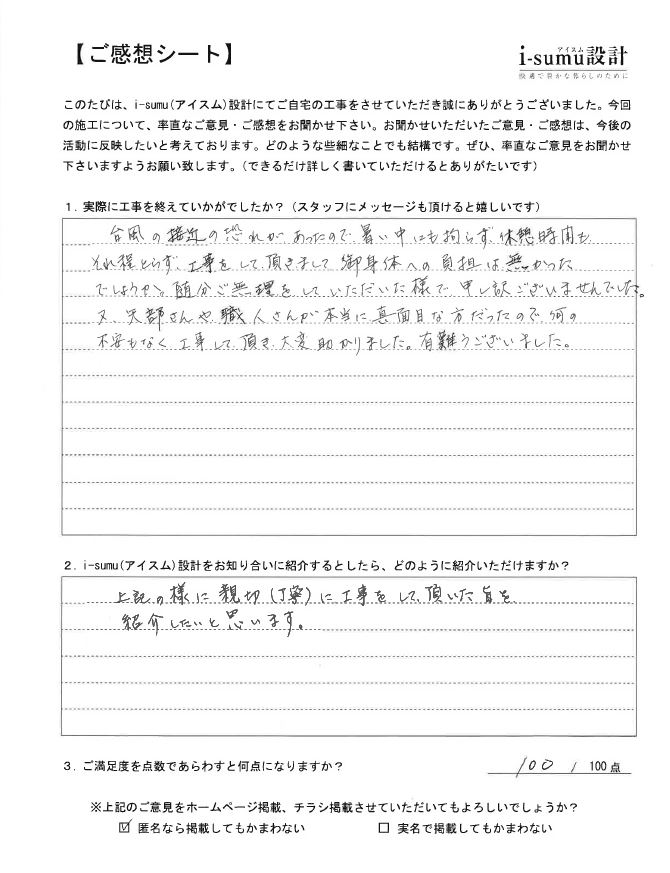 【ご感想シート】
アイスム
i-sumu設計
快適で豊かな暮らしのために
このたびは、i-sumu(アイスム)設計にてご自宅の工事をさせていただき誠にありがとうございました。今回
の施工について、率直なご意見・ご感想をお聞かせ下さい。お聞かせいただいたご意見・ご感想は、今後の
活動に反映したいと考えております。どのような些細なことでも結構です。ぜひ、率直なご意見をお聞かせ
下さいますようお願い致します。(できるだけ詳しく書いていただけるとありがたいです)
1. 実際に工事を終えていかがでしたか?(スタッフにメッセージも頂けると嬉しいです)
台風の接近の恐れがあったので、暑い中にも拘らず、休憩時間も
それ程とらず、工事をして頂きまして御身体への負担は無かった
でしょうか。随分ご無理をしていただいた様で申し訳ございませんでした。
又、矢部さんや職人さんが本当に真面目な方だったので、何の
不安もなく工事して頂き、大変助かりました。有難うございました。
2. i-sumu(アイスム)設計をお知り合いに紹介するとしたら、どのように紹介いただけますか?
上記の様に親切(丁寧)に工事をして頂いた旨を
紹介したいと思います。
3. ご満足度を点数であらわすと何点になりますか?
100 / 100点
※上記のご意見をホームページ掲載、チラシ掲載させていただいてもよろしいでしょうか?
☑ 匿名なら掲載してもかまわない □ 実名で掲載してもかまわない